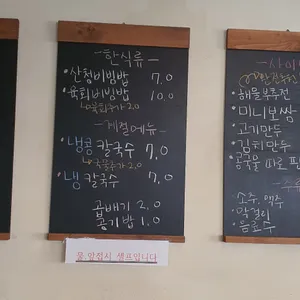 -한식류-
·산청비빔밥 7.0
·육회비빔밥 10.0
└육회추가 2.0
-계절메뉴-
·냉콩 칼국수 7.0
·냉 칼국수 7.0
곱배기 2.0
공기밥 1.0
물,앞접시 셀프입니다
-사이
·해물부추전
·미니보쌈
·고기만두
·김치만두
·소주, 맥주
·막걸리
·음료수